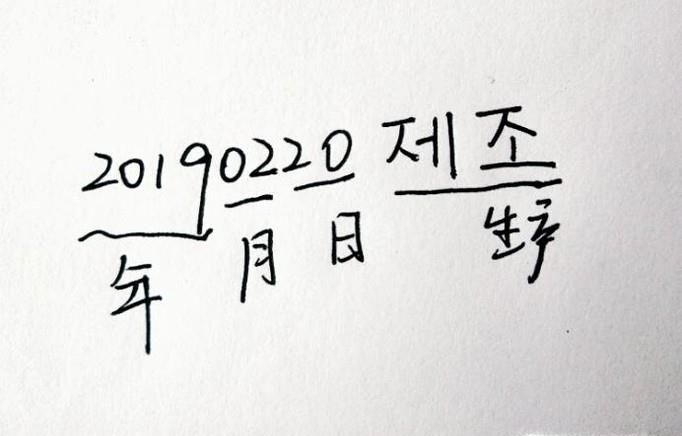 20190220 제조
年 月 日 生产